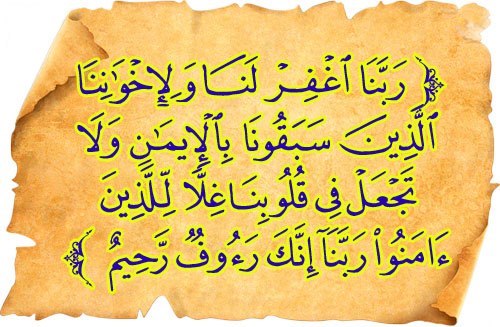 ﴿ رَبَّنَا ٱغْفِرْ لَنَا وَلِإِخْوَٰنِنَا
ٱلَّذِينَ سَبَقُونَا بِٱلْإِيمَٰنِ وَلَا
تَجْعَلْ فِى قُلُوبِنَا غِلًّا لِّلَّذِينَ
ءَامَنُوا۟ رَبَّنَآ إِنَّكَ رَءُوفٌ رَّحِيمٌ ﴾